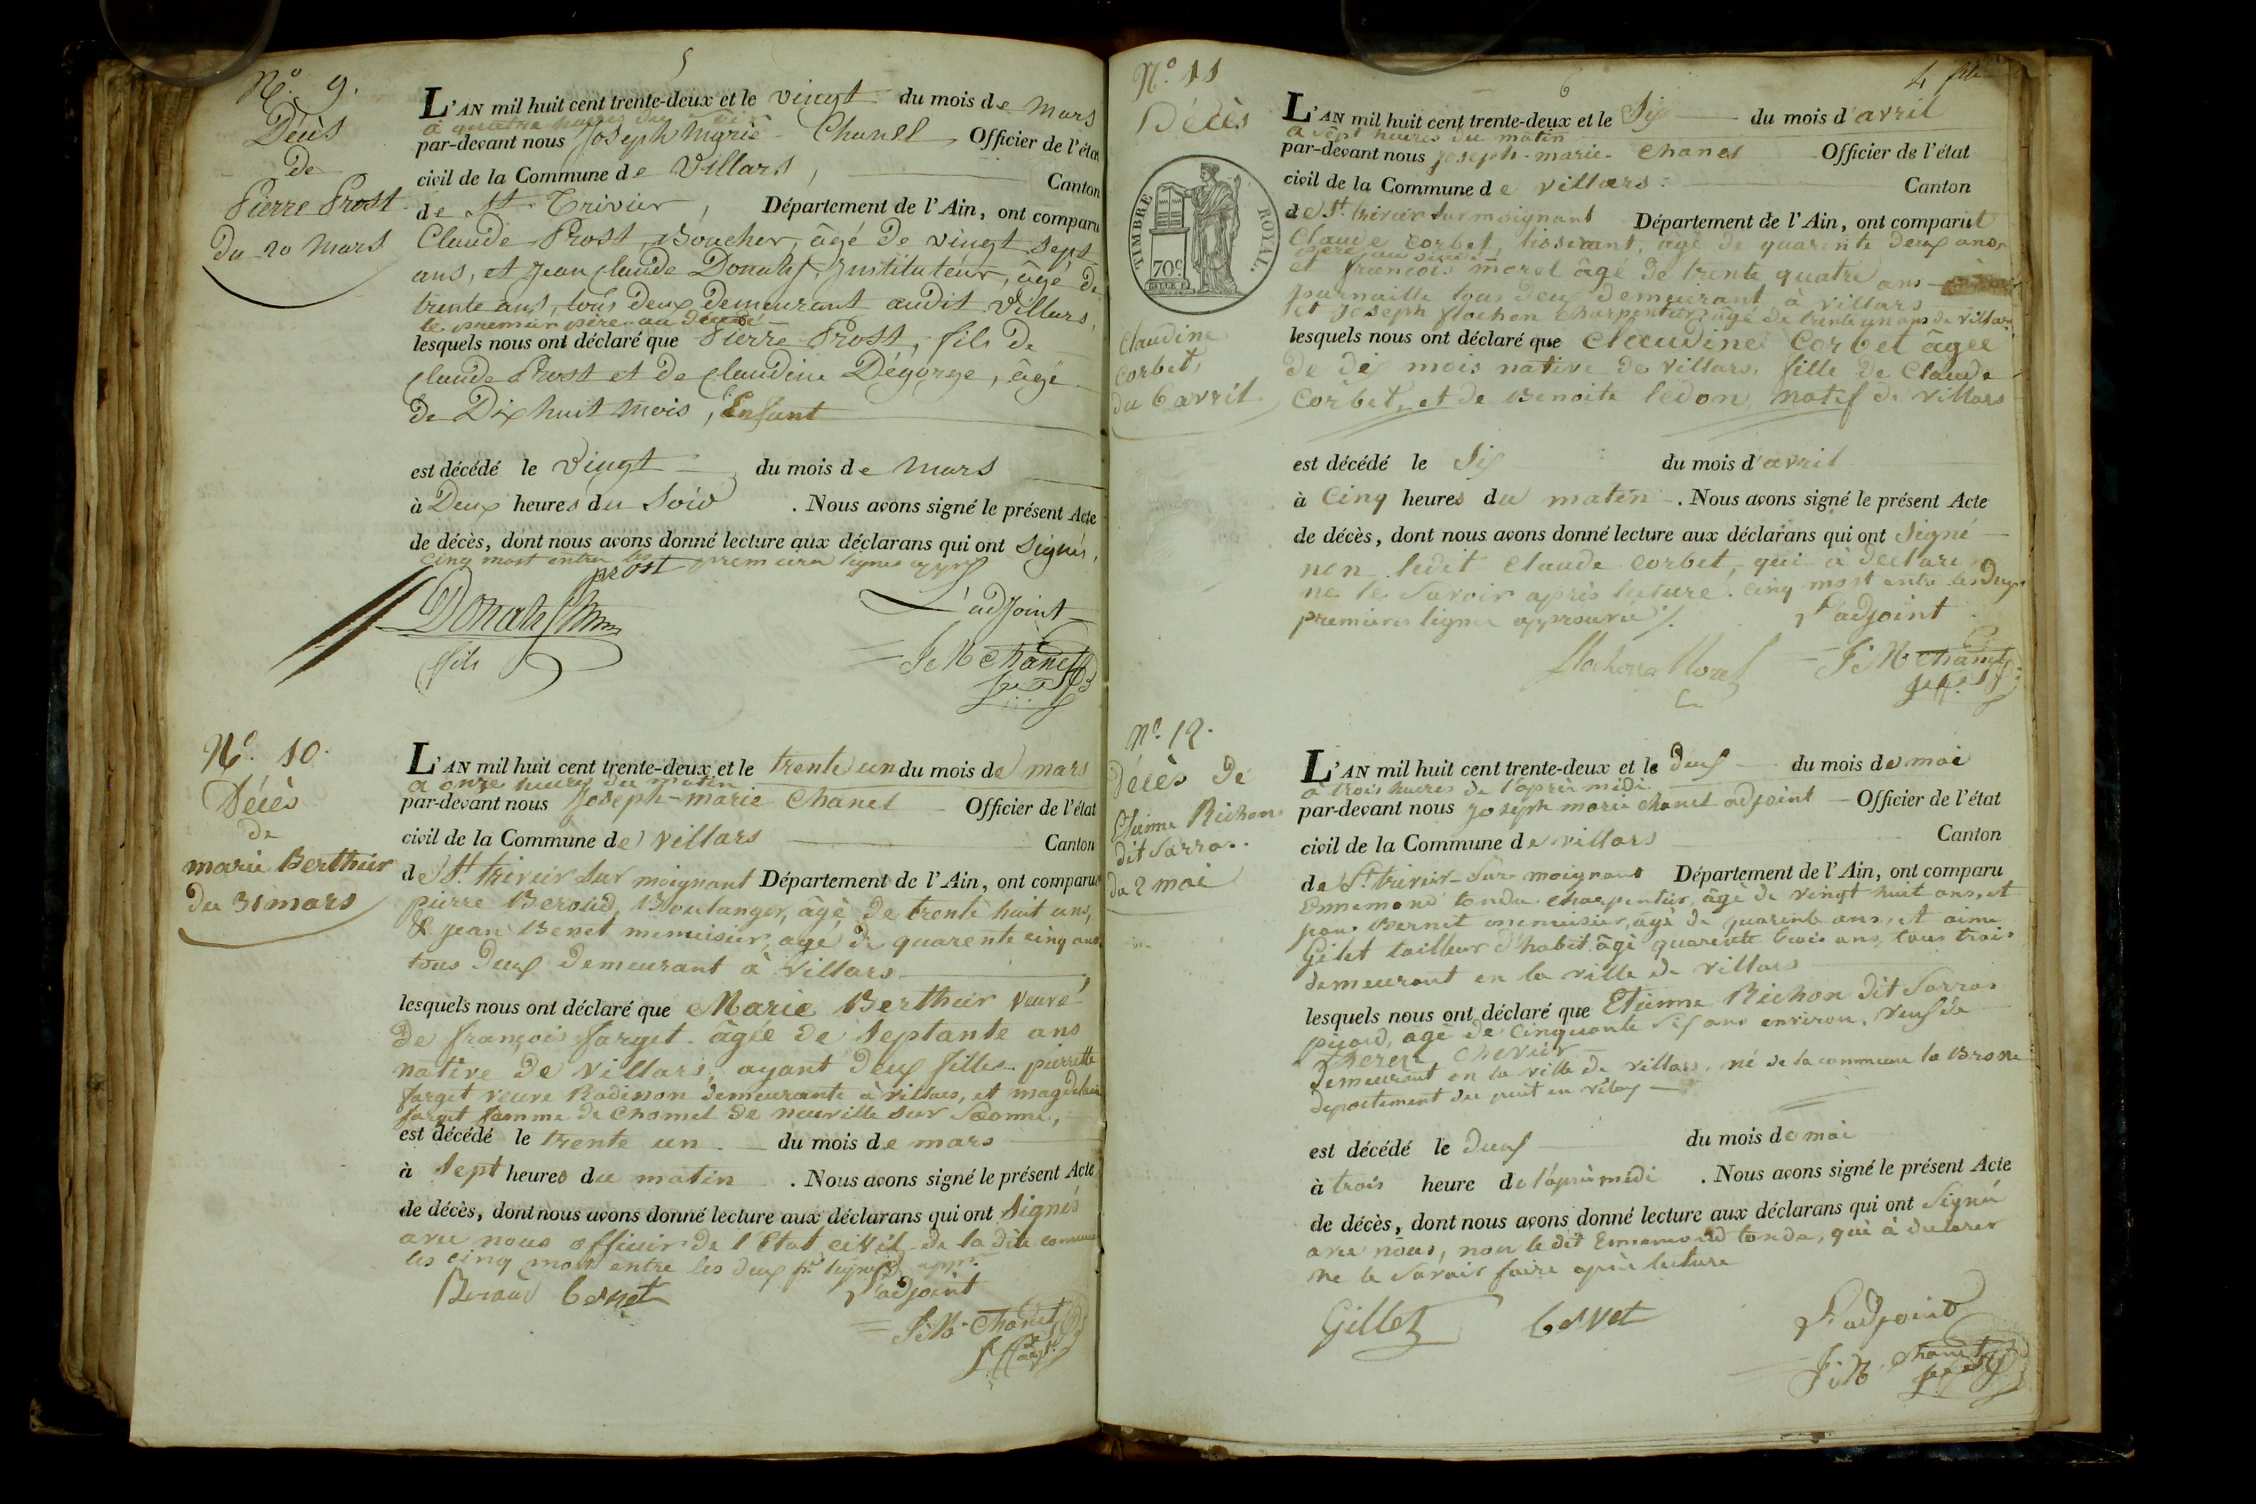 5
N.o 9.
Décès
de
Pierre Prost
du 20 mars
L'AN mil huit cent trente-deux et le vingt du mois de mars
à quatre heures du soir
par-devant nous Joseph Marie Chanel Officier de l'état
civil de la Commune de Villars, Canton
de St. Trivier, Département de l'Ain, ont comparu
Claude Prost, Boucher, âgé de vingt sept
ans, et Jean Claude Donat, Instituteur, âgé de
trente ans, tous deux demeurant audit Villars,
le premier père au décédé
lesquels nous ont déclaré que Pierre Prost, fils de
Claude Prost et de Claudine Dégorge, âgé
de Dix huit mois, Enfant
est décédé le vingt du mois de mars
à Deux heures du Soir . Nous avons signé le présent Acte
de décès, dont nous avons donné lecture aux déclarans qui ont signés,
cinq most entre les premiera lignes
prost
L'adjoint
fils
J. M. Chanel
N.o 10.
Décès
de
marie Berthier
du 31 mars
L'AN mil huit cent trente-deux et le trente un du mois de mars
a onze heures du matin
par-devant nous Joseph-marie Chanel Officier de l'état
civil de la Commune de villars Canton
de St. trivier sur moignant Département de l'Ain, ont comparu
pierre Beroud, Boulanger, âgé de trente huit ans,
& jean Benet menuisier, agé de quarente cinq ans
tous deux demeurant à Villars
lesquels nous ont déclaré que Marie Berthier veuve
de françois farget âgée de septante ans
native de villars, ayant deux filles pierrette
farget veuve Radisson demeurante à villars, et magdelaine
farget famme de Chomel de neuville sur Saonne,
est décédé le trente un du mois de mars
à sept heures du matin . Nous avons signé le présent Acte
de décès, dont nous avons donné lecture aux déclarans qui ont signés
avec nous officier de l'état civil de la dite commune
les cinq most entre les deux
Beraud bernet L'adjoint
J. M. Chanel
4
6
N.o 11
Décès
TIMBRE ROYAL.
70c
Claudine
corbet,
du 6 avril
L'AN mil huit cent trente-deux et le six du mois d'avril
a sept heures du matin
par-devant nous joseph-marie Chanel Officier de l'état
civil de la Commune de villars Canton
de St. trivier sur moignant Département de l'Ain, ont comparut
Claude corbet, tisserant, âgé de quarente deux ans,
et françois morel âgé de trente quatre ans
journaille tous deux demeurant à villars
et Joseph flachon charpentier âgé de trente un ans de villars
lesquels nous ont déclaré que Claudine Corbet âgée
de dix mois native de villars, fille de Claude
Corbet, et de Benoite ledon natif de villars
est décédé le six du mois d'avril
à Cinq heures du matin . Nous avons signé le présent Acte
de décès, dont nous avons donné lecture aux déclarans qui ont signé
non ledit Claude corbet, qui à declaré
ne le savoir après lecture. cinq most entre les deux
premieres lignes approuvé
L'adjoint
flachon Morel J. M. Chanel
N.o 12.
Décès de
Etienne Richon
dit sarra
du 2 mai
L'AN mil huit cent trente-deux et le deux du mois de mai
à trois heures de l'après midi
par-devant nous joseph marie chanel adjoint Officier de l'état
civil de la Commune de villars Canton
de St. trivier-sur moignans Département de l'Ain, ont comparu
Ennemond tondu charpentier, âgé de vingt huit ans, et
Bernet menuisier, âgé de quarente ans, et aimé
Gilet tailleur d'habit âgé quarente trois ans, tous trois
demeurant en la ville de villars
lesquels nous ont déclaré que Etienne Richon dit sarra
âgé de cinquante six ans environ, veuf de
Chevrier
demeurant en la ville de villars, né de la commune la Brone
departement du puit en vélay
est décédé le deux du mois de mai
à trois heure de l'après midi . Nous avons signé le présent Acte
de décès, dont nous avons donné lecture aux déclarans qui ont signé
avec nous, non le dit Ennemond tondu, qui à declarer
ne le savoir faire après lecture
Gillet bernet L'adjoint
J. M. Chanel